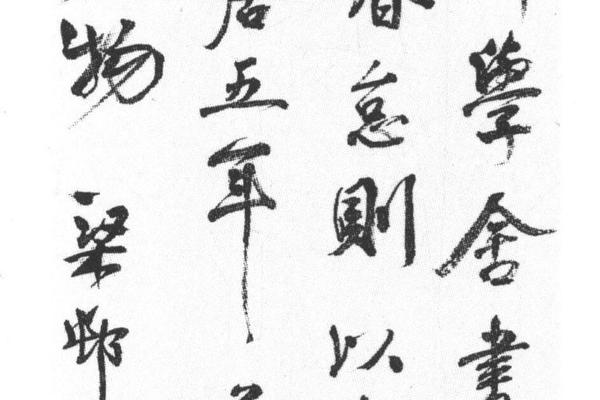 學舍書
怠則以
居五年
物 梁邨